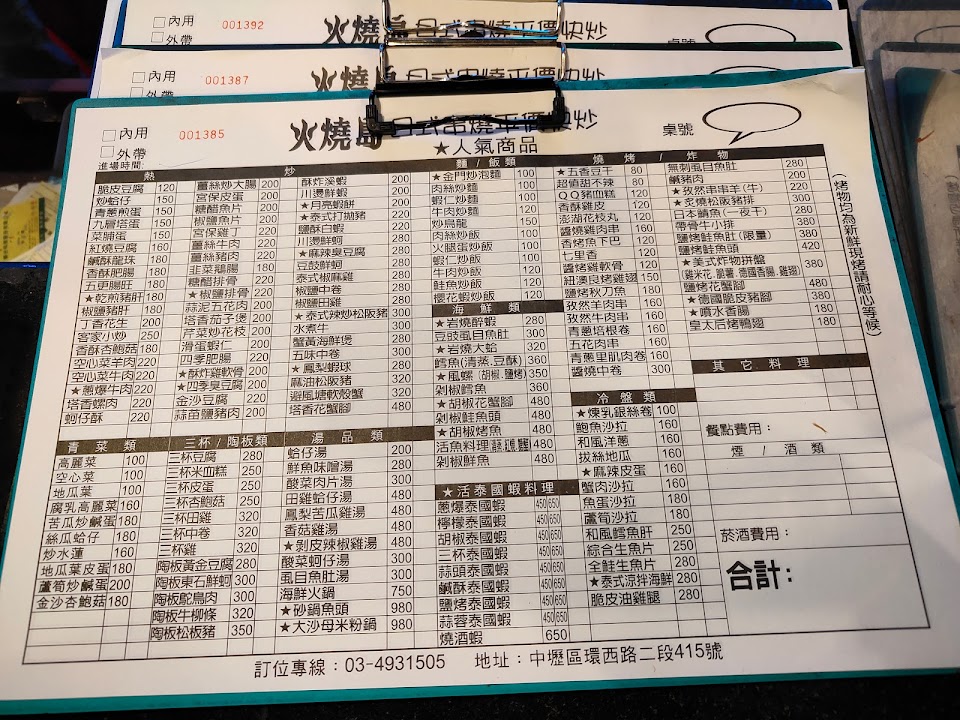 內用
外帶
001392
火燒島日式串燒平價快炒
桌號
內用
外帶
001387
火燒島日式串燒平價快炒
內用
外帶
001385
進場時間:
火燒島日式串燒平價快炒
★人氣商品
桌號
熱 炒
脆皮豆腐 120
炒蛤仔 150
青蔥煎蛋 150
九層塔蛋 150
菜脯蛋 150
紅燒豆腐 160
鹹酥龍珠 180
香酥肥腸 180
五更腸旺 180
★乾煎豬肝 180
椒鹽豬肝 180
丁香花生 200
客家小炒 250
香酥杏鮑菇 180
空心菜羊肉 220
空心菜牛肉 220
★蔥爆牛肉 220
塔香螺肉 220
蚵仔酥 220
薑絲炒大腸 200
宮保皮蛋 200
糖醋魚片 200
椒鹽魚片 200
宮保雞丁 200
薑絲牛肉 220
薑絲豬肉 220
韭菜鵝腸 180
糖醋排骨 220
★椒鹽排骨 220
蒜泥五花肉 200
塔香茄子煲 200
芹菜炒花枝 200
滑蛋蝦仁 200
四季肥腸 220
★酥炸雞軟骨 220
★四季臭豆腐 220
金沙豆腐 200
蒜苗鹽豬肉 200
酥炸溪蝦 200
川燙鮮蝦 200
★月亮蝦餅 200
★泰式打拋豬 200
鹽酥白蝦 220
川燙鮮蚵 220
★麻辣臭豆腐 220
豆鼓鮮蚵 220
泰式椒麻雞 220
椒鹽中卷 220
椒鹽田雞 220
★泰式辣炒松阪豬 300
水煮牛 300
蟹黃海鮮煲 300
五味中卷 300
★鳳梨蝦球 280
麻油松阪豬 320
避風塘軟殼蟹 320
塔香花蟹腳 480
麵 / 飯 類
★金門炒泡麵 100
肉絲炒麵 100
蝦仁炒麵 100
牛肉炒麵 120
炒烏龍 150
肉絲炒飯 100
火腿蛋炒飯 100
蝦仁炒飯 100
牛肉炒飯 120
鮭魚炒飯 120
櫻花蝦炒飯 120
海 鮮 類
★岩燒醉蝦 280
豆豉虱目魚肚 300
★岩燒大蛤 320
鱈魚(清蒸.豆酥) 360
★風螺 (胡椒.鹽烤) 350
剁椒鱈魚 360
★胡椒花蟹腳 480
剁椒鮭魚頭 480
★胡椒烤魚 480
活魚料理 480
剁椒鮮魚 480
★活泰國蝦料理
蔥爆泰國蝦 450 650
檸檬泰國蝦 450 650
胡椒泰國蝦 450 650
三杯泰國蝦 450 650
蒜頭泰國蝦 450 650
鹹酥泰國蝦 450 650
鹽烤泰國蝦 450 650
蒜蓉泰國蝦 450 650
燒酒蝦 650
燒 烤 / 炸 物
★五香豆干 80
超值甜不辣 80
QQ豬血糕 120
香酥雞皮 120
澎湖花枝丸 120
醬燒雞肉串 160
香烤魚下巴 120
七里香 120
醬烤雞軟骨 120
紐澳良烤雞翅 150
鹽烤秋刀魚 180
孜然羊肉串 160
孜然牛肉串 160
青蔥培根卷 160
五花肉串 160
青蔥里肌肉卷 150
醬燒中卷 300
無刺虱目魚肚 280
鹹豬肉 200
★孜然串串羊(牛) 220
★炙燒松阪豬排 300
日本鯖魚(一夜干) 280
帶骨牛小排 380
鹽烤鮭魚肚(限量) 380
鹽烤鮭魚頭 420
★美式炸物拼盤 380
(雞米花.脆薯.德國香腸.雞翅)
鹽烤花蟹腳 480
★德國脆皮豬腳 380
★噴水香腸 180
皇太后烤鴨翅 180
(烤物均為新鮮現烤請耐心等候)
冷 盤 類
★煉乳銀絲卷 100
鮑魚沙拉 160
和風洋蔥 160
拔絲地瓜 160
★麻辣皮蛋 160
蟹肉沙拉 160
魚蛋沙拉 180
蘆筍沙拉 180
和風鱈魚肝 250
綜合生魚片 250
全鮭生魚片 280
★泰式涼拌海鮮 280
脆皮油雞腿 280
青 菜 類
高麗菜 100
空心菜 100
地瓜葉 100
腐乳高麗菜 160
苦瓜炒鹹蛋 180
絲瓜蛤仔 180
炒水蓮 160
地瓜葉皮蛋 180
蘆筍炒鹹蛋 200
金沙杏鮑菇 180
三杯 / 陶板類
三杯豆腐 280
三杯米血糕 250
三杯皮蛋 250
三杯杏鮑菇 250
三杯田雞 320
三杯中卷 320
三杯雞 320
陶板黃金豆腐 280
陶板東石鮮蚵 300
陶板鴕鳥肉 300
陶板牛柳條 320
陶板松板豬 350
湯 品 類
蛤仔湯 200
鮮魚味噌湯 280
酸菜肉片湯 300
田雞蛤仔湯 480
鳳梨苦瓜雞湯 480
香菇雞湯 480
★剝皮辣椒雞湯 480
酸菜蚵仔湯 300
虱目魚肚湯 300
海鮮火鍋 750
★砂鍋魚頭 980
★大沙母米粉鍋 980
其 它 料 理
餐點費用：
煙 / 酒 類
菸酒費用：
合計：
訂位專線：03-4931505 地址：中壢區環西路二段415號